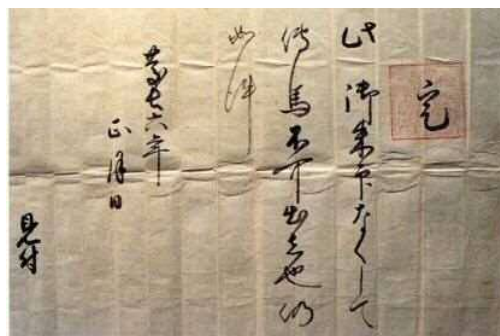 定
此 御朱印なくして
傳馬不可出者也仍
如件
慶長六年
正月日
見付